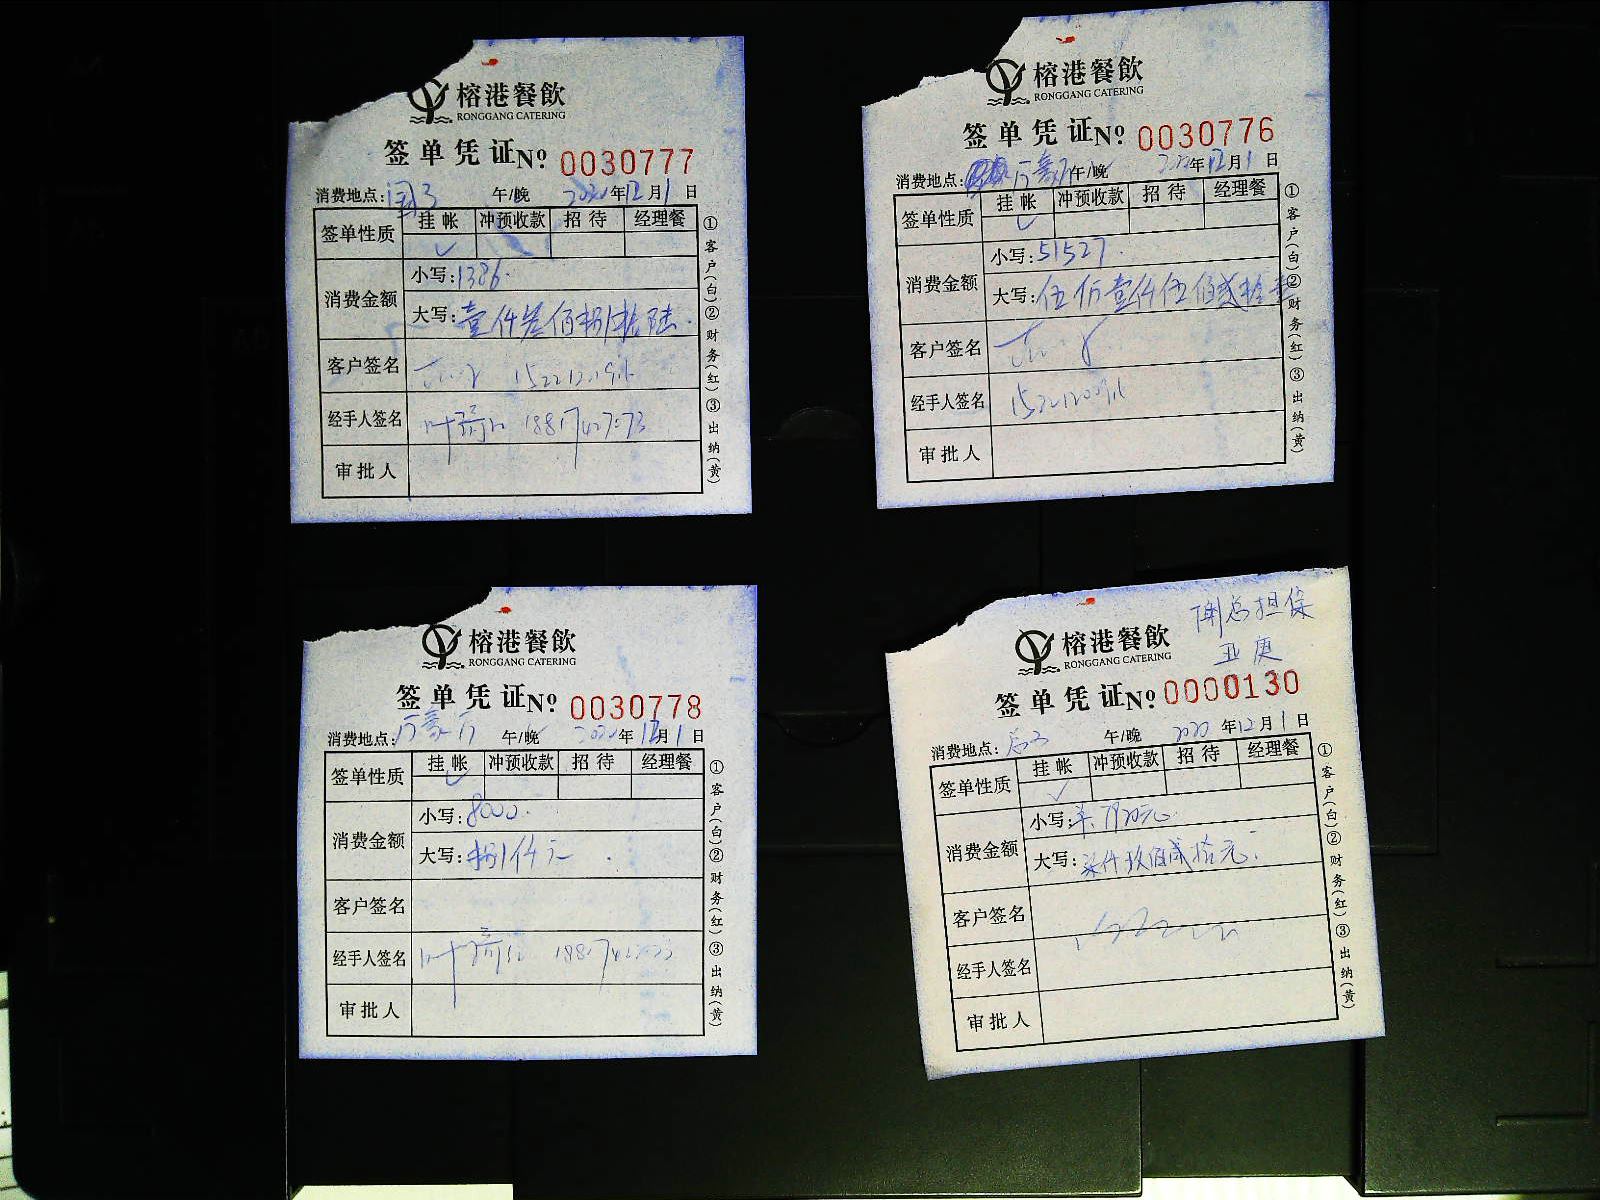 榕港餐飲
RONGGANG CATERING
签单凭证№ 0030777
消费地点: 国3 午/晚 2020年12月1日
签单性质 挂帐 冲预收款 招待 经理餐
消费金额
小写:1386.
大写:壹仟叁佰捌拾陆.
客户签名
经手人签名
审批人
①客户(白)②财务(红)③出纳(黄)
榕港餐飲
RONGGANG CATERING
签单凭证№ 0030776
消费地点: 万豪厅 午/晚 2020年12月1日
签单性质 挂帐 冲预收款 招待 经理餐
消费金额
小写:51527.
大写:伍万壹仟伍佰贰拾柒
客户签名
经手人签名
审批人
①客户(白)②财务(红)③出纳(黄)
榕港餐飲
RONGGANG CATERING
签单凭证№ 0030778
消费地点: 万豪厅 午/晚 2020年12月1日
签单性质 挂帐 冲预收款 招待 经理餐
消费金额
小写:8000.
大写:捌仟元.
客户签名
经手人签名
审批人
①客户(白)②财务(红)③出纳(黄)
总担保
亚庚
榕港餐飲
RONGGANG CATERING
签单凭证№ 0000130
消费地点: 午/晚 2020年12月1日
签单性质 挂帐 冲预收款 招待 经理餐
消费金额
小写: 7920元
大写:柒仟玖佰贰拾元.
客户签名
经手人签名
审批人
①客户(白)②财务(红)③出纳(黄)